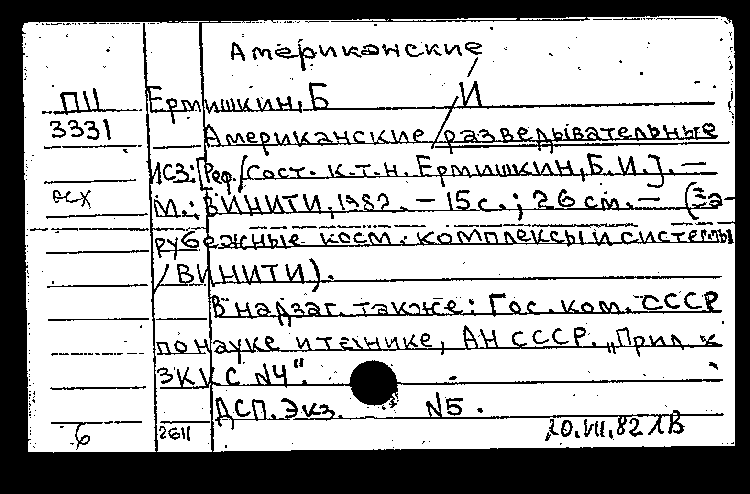 Американские
П11 Ермишкин, Б И
3331 Американские разведывательные
ИСЗ: [Реф./Сост. к.т.н. Ермишкин, Б.И.]. —
М.: ВИНИТИ, 1982. – 15 с.; 26 см. — (За-
рубежные косм. комплексы и системы
/ВИНИТИ).
В надзаг. также: Гос. ком. СССР
по науке и технике, АН СССР. „Прил. к
ЗККС N4".
ДСП. Экз. N5.
6 2611 20.VII.82 ЛВ